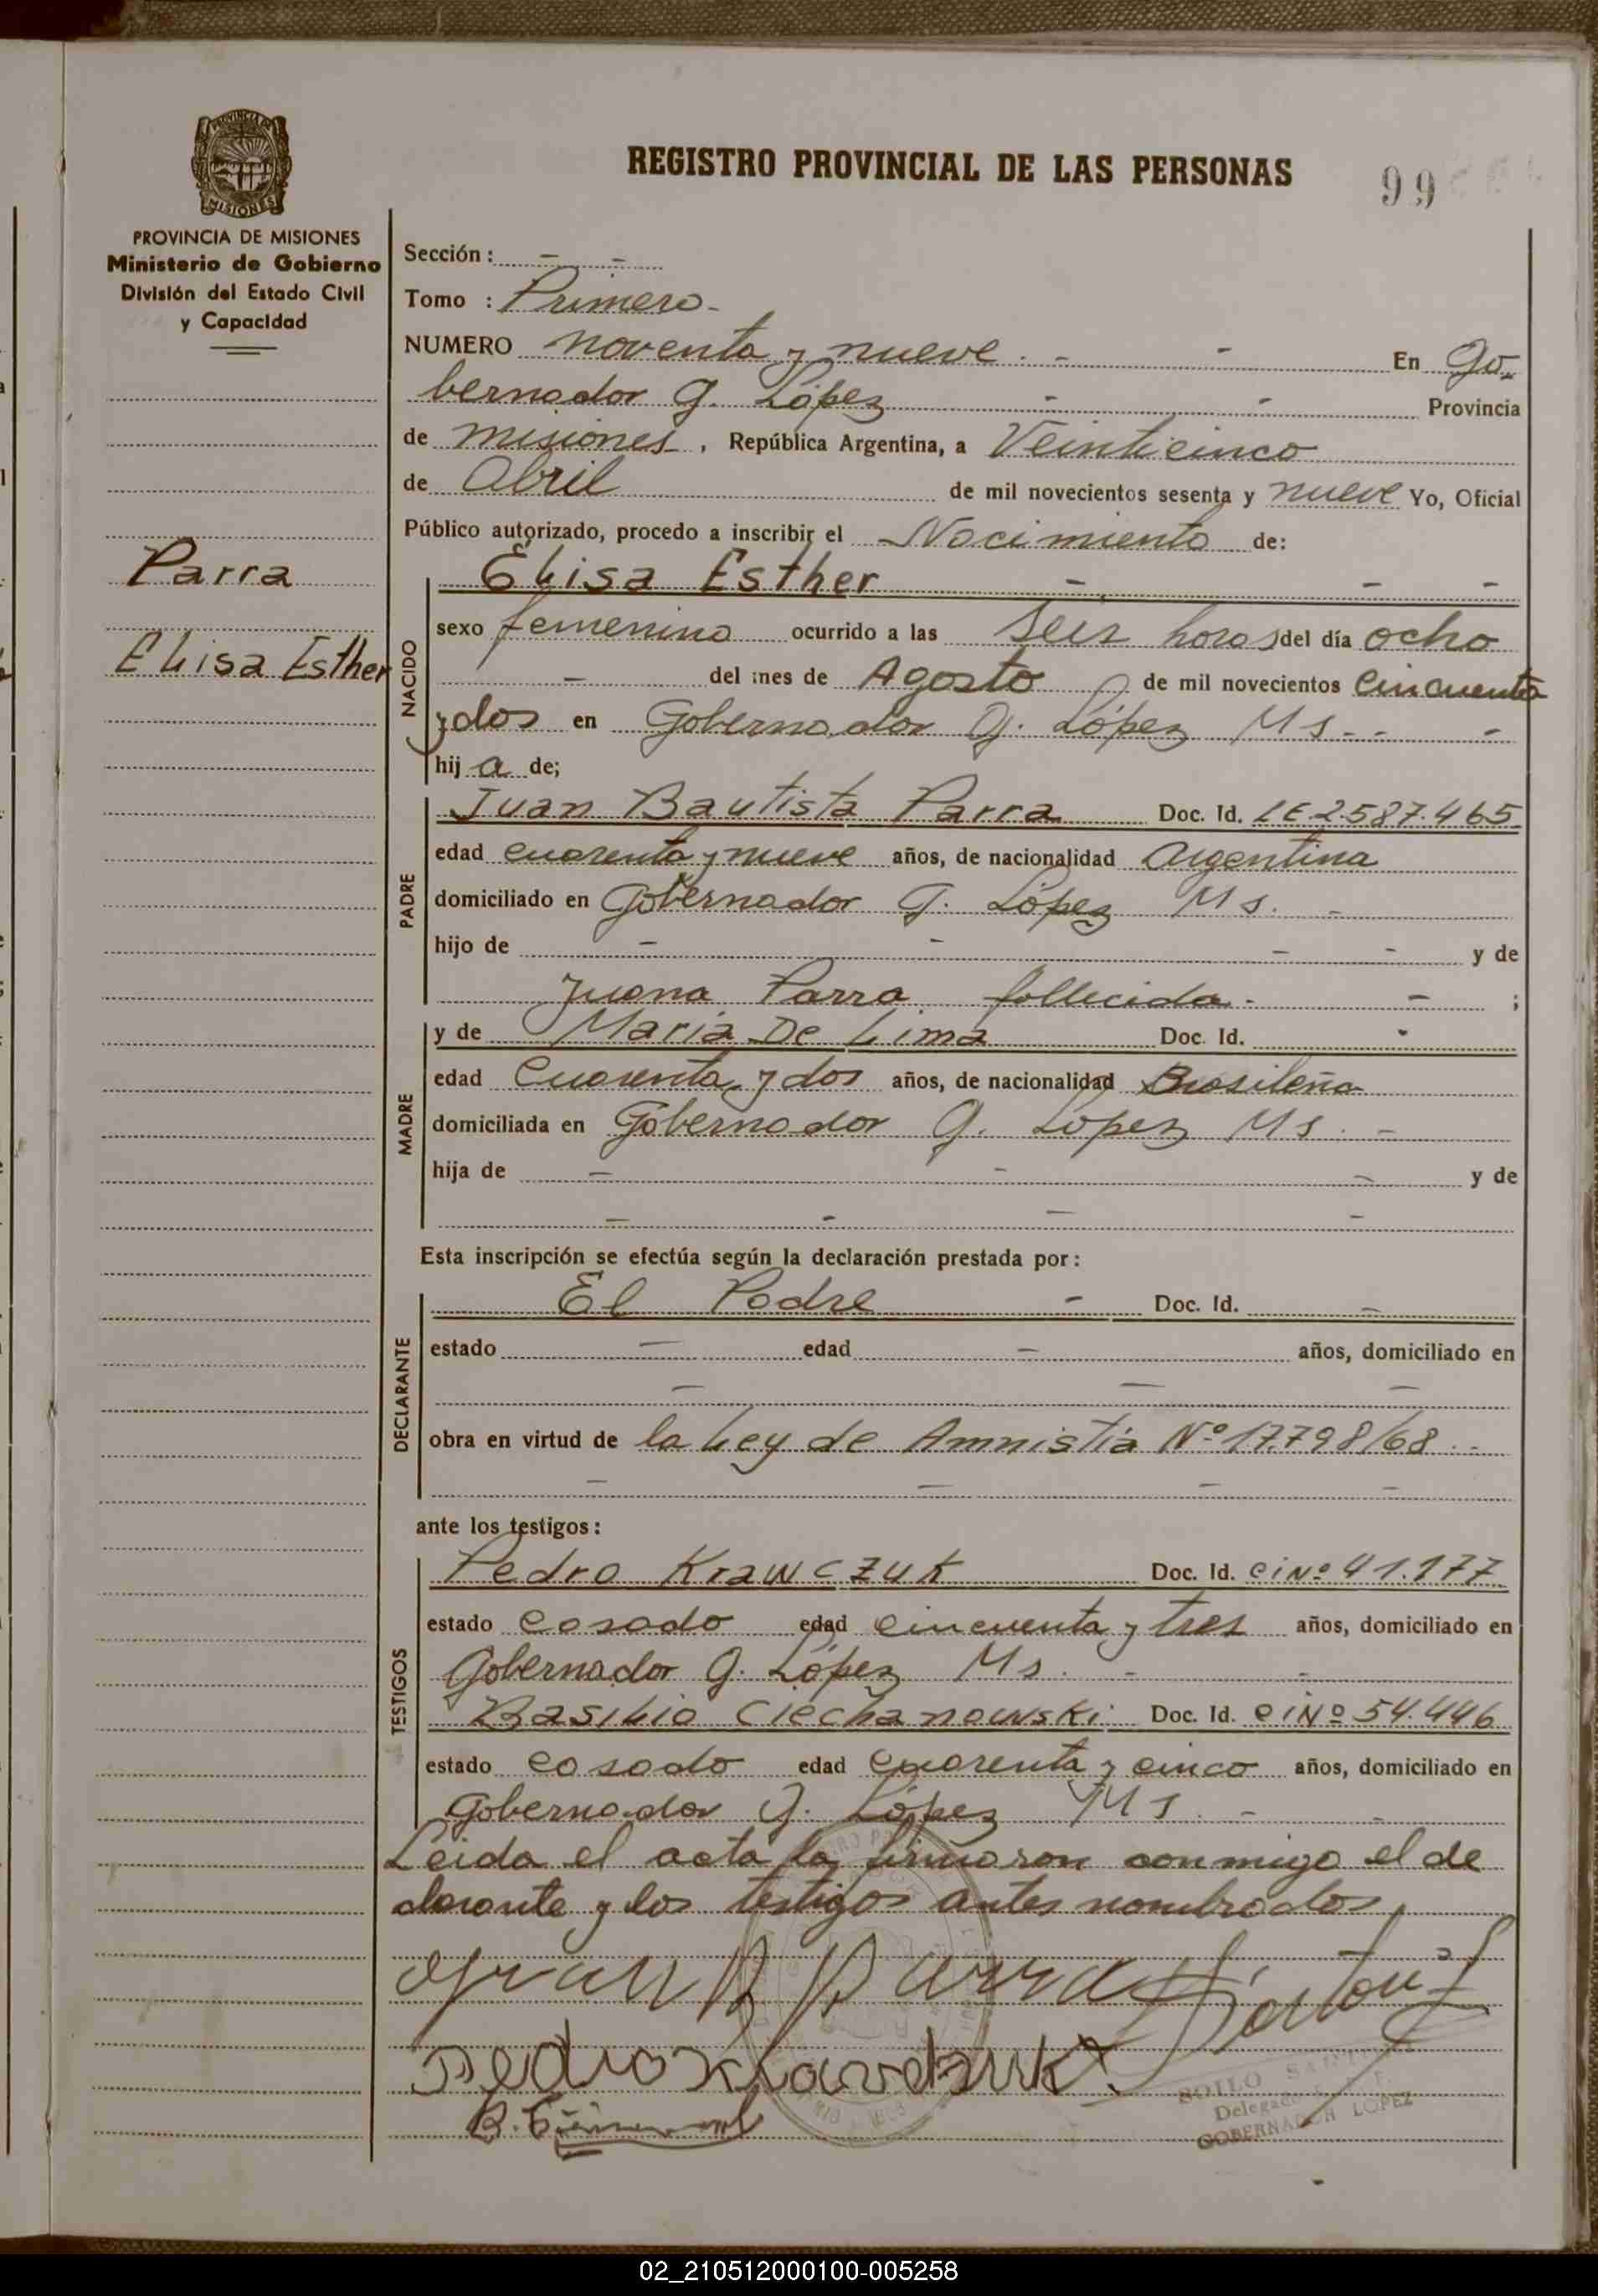 REGISTRO PROVINCIAL DE LAS PERSONAS
99
PROVINCIA DE MISIONES
Ministerio de Gobierno
División del Estado Civil
y Capacidad
Parra
Elisa Esther
Sección : - -
Tomo : Primero -
NUMERO noventa y nueve . - - En Go-
bernador G. López - - Provincia
de misiones , República Argentina, a Veinticinco
de Abril de mil novecientos sesenta y nueve Yo, Oficial
Público autorizado, procedo a inscribir el Nacimiento de:
NACIDO
Elisa Esther - - -
sexo femenino ocurrido a las seis horas del día ocho
- del mes de Agosto de mil novecientos cincuenta
y dos en Gobernador G. López Ms - - -
hij a de;
PADRE
Juan Bautista Parra Doc. Id. LE 2.587.465
edad cuarenta y nueve años, de nacionalidad Argentina
domiciliado en Gobernador G. López Ms. -
hijo de - - - - y de
Juana Parra fallecida - - ;
MADRE
y de María De Lima Doc. Id. -
edad Cuarenta y dos años, de nacionalidad Brasileña
domiciliada en Gobernador G. López Ms. -
hija de - - - y de
- - - -
Esta inscripción se efectúa según la declaración prestada por:
DECLARANTE
El Padre - Doc. Id. -
estado - edad - años, domiciliado en
- - -
obra en virtud de la Ley de Amnistía Nº 17.798/68 . -
- - - -
ante los testigos:
TESTIGOS
Pedro Krawczuk Doc. Id. CiNº 41.177
estado casado edad cincuenta y tres años, domiciliado en
Gobernador G. López Ms. - -
Basilio Ciechanowski Doc. Id. CiNº 54.446
estado casado edad cuarenta y cinco años, domiciliado en
Gobernador G. López Ms. - -
Leida el acta la firmaron conmigo el de
clarante y los testigos antes nombrados.
Juan B Parra
Delegado
GOBERNADOR LOPEZ
02_210512000100-005258